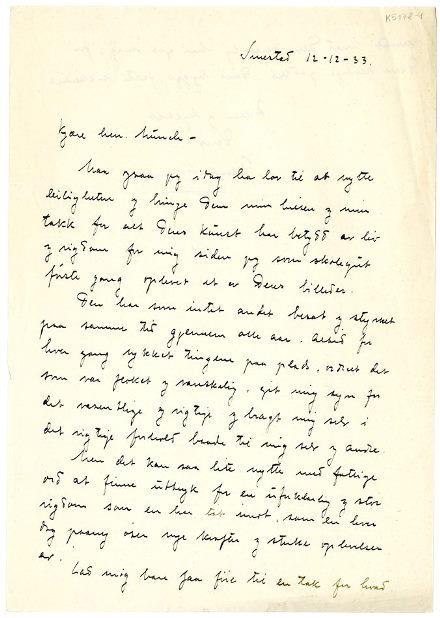 K5172-1
Smestad 12-12-33.
Kjære herr Munch –
Maa jeg idag ha lov til at nytte
leiligheten og bringe Dem min hilsen og min
takk for alt Deres kunst har betydd av liv
og rigdom for mig siden jeg som skolegut
første gang oplevet et av Deres billeder.
Den har som intet andet beroet og styrket
paa samme tid gjennem alle aar. Altid har
hver gang rykket tingene paa plads, rettet det
som var forket og vanskelig, git mig syn for
det væsentlige og rigtige og bragt mig selv i
det rigtige forhold baade til mig selv og andre.
Men det kan saa lite nytte med fattige
ord at finne uttryk for en ufuldendt og stor
rigdom som en har tat imot, som en hver
dag paany øser nye krefter og sterke oplevelser
av.
Lad mig bare faa føie til en tak for hvad